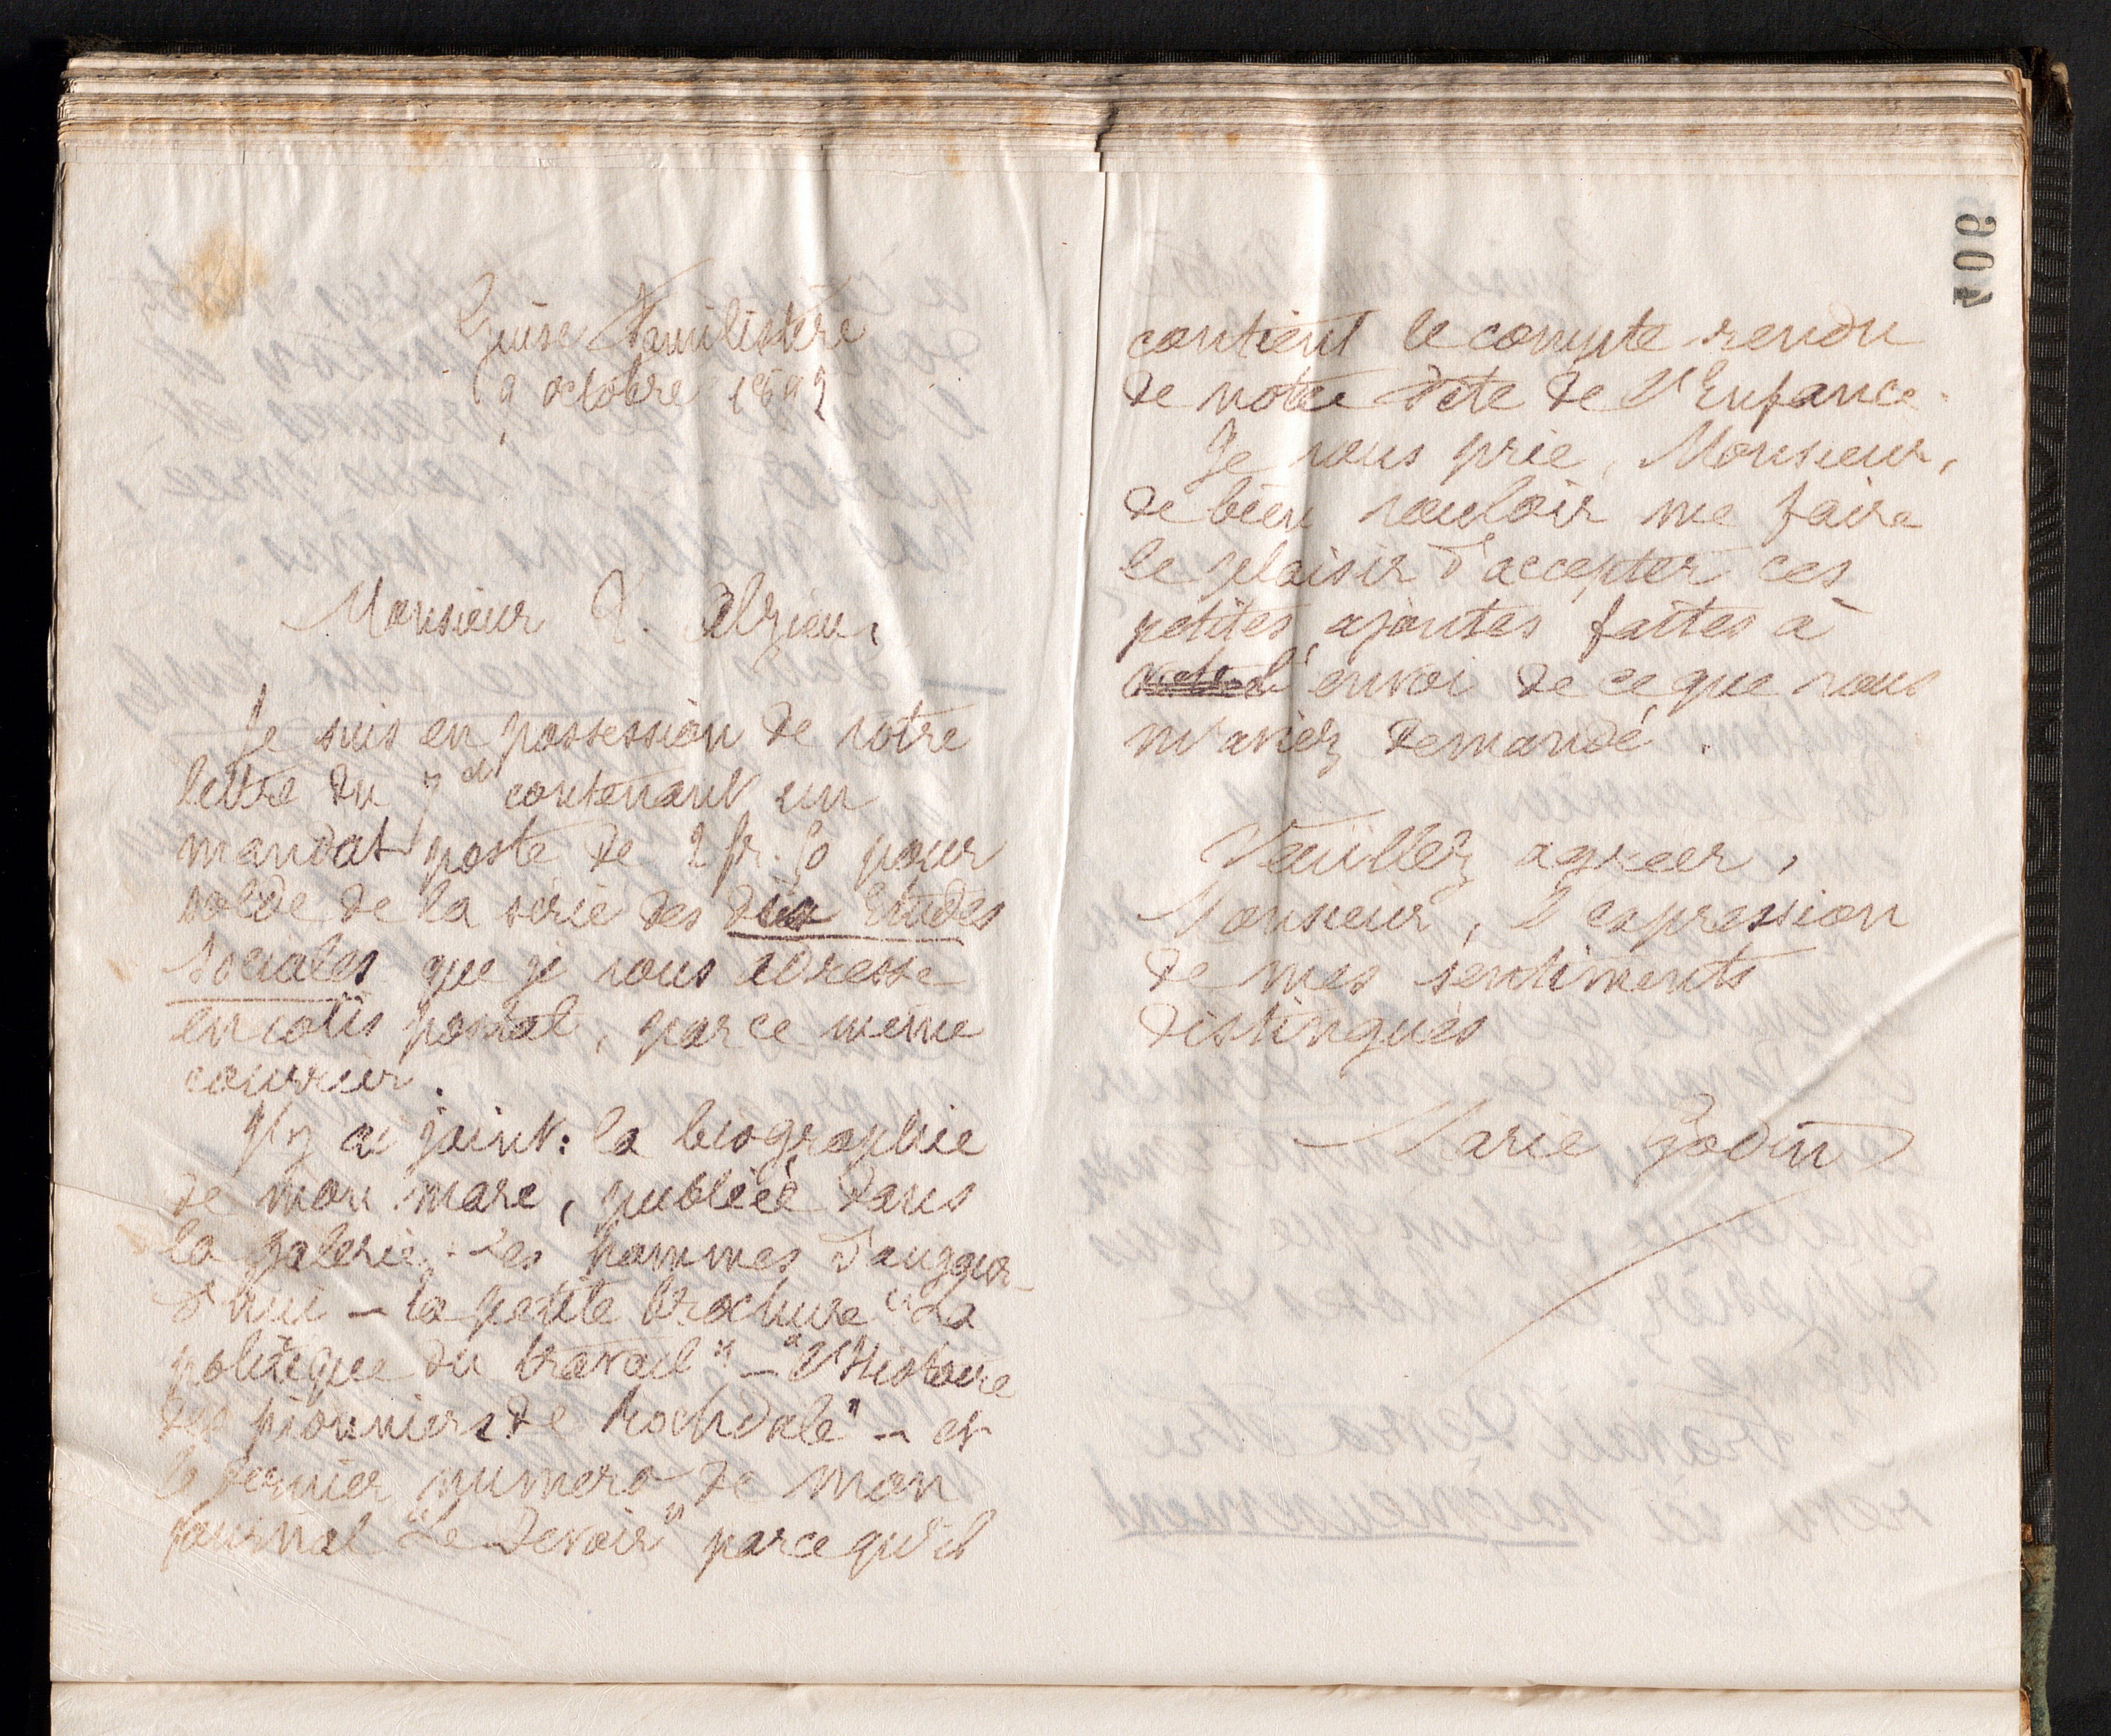 Guise Familistère
9 octobre 1892
Monsieur V. Alzieu,
Je suis en possession de votre
lettre du 7 ct contenant un
mandat poste de 2 fr. 50 pour
solde de la série des dix Etudes
Sociales que je vous adresse
en colis postal, par ce même
courrier.
J'y ai joint : la biographie
de mon mari, publiée dans
la galerie : Les hommes d'aujour-
d'hui – la petite brochure "La
politique du travail" – "L'Histoire
des pionniers de Rochdale" – et
le dernier numéro de mon
journal "Le Devoir" parce qu'il
406
contient le compte rendu
de notre fête de l'Enfance.
Je vous prie, Monsieur,
de bien vouloir me faire
le plaisir d'accepter ces
petites ajoutes faites à
l'envoi de ce que vous
m'aviez demandé.
Veuillez agréer,
Monsieur, l'expression
de mes sentiments
distingués
Marie Godin